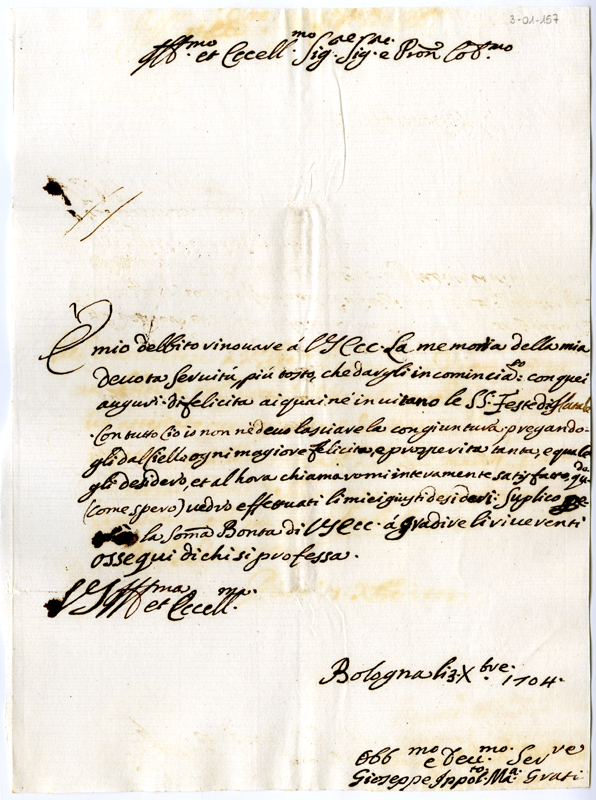 3-01-157
Illmo. et Eccell.mo Sig.re Sig.re e Pron Col.mo
É mio debbito rinovare á l'V Ecc. La memoria della mia
devota Servitú, piú tosto, che dargli incomincia.to con quei
auguri di felicita ai quai ne invitano le SS. Feste di
Con tutto Cio io non ne devo lasciare la congiuntura pregando-
gli dal Ciello ogni magiore felicita, e prosperita tanta, e quale
gli desidero, et al hora chiamaromi interamente satisfatto, qu.do
(come spero) vedro effettuati li miei giusti desideri: Suplico
la Soma Bonta di V Ecc. á gradire li riverenti
ossequi di chi si professa.
V S Illma et Eccell.ma
Bologna li 3 Xbre. 1704.
Obb.mo e Dev.mo Ser.re
Gioseppe Ippol.to Ma. Grati